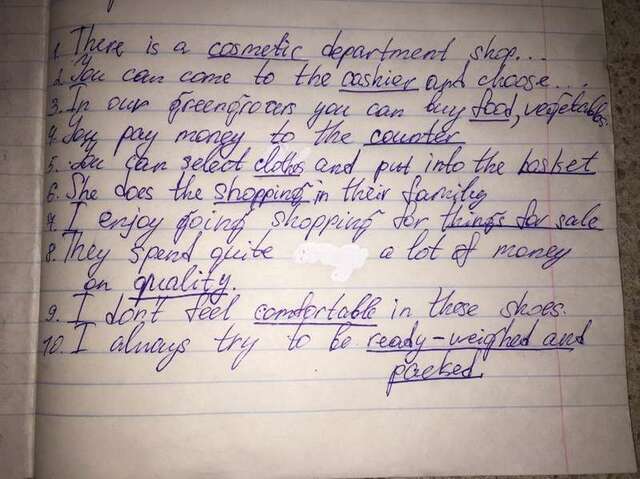 1. There is a cosmetic department shop...
2. You can come to the cashier and choose...
3. In our greengrocers you can buy food, vegetables.
4. You pay money to the counter
5. You can select clothes and put into the basket
6. She does the shopping in their family
7. I enjoy going shopping for things for sale
8. They spend quite a lot of money
on quality.
9. I don't feel comfortable in these shoes.
10. I always try to be ready-weighed and
packed.